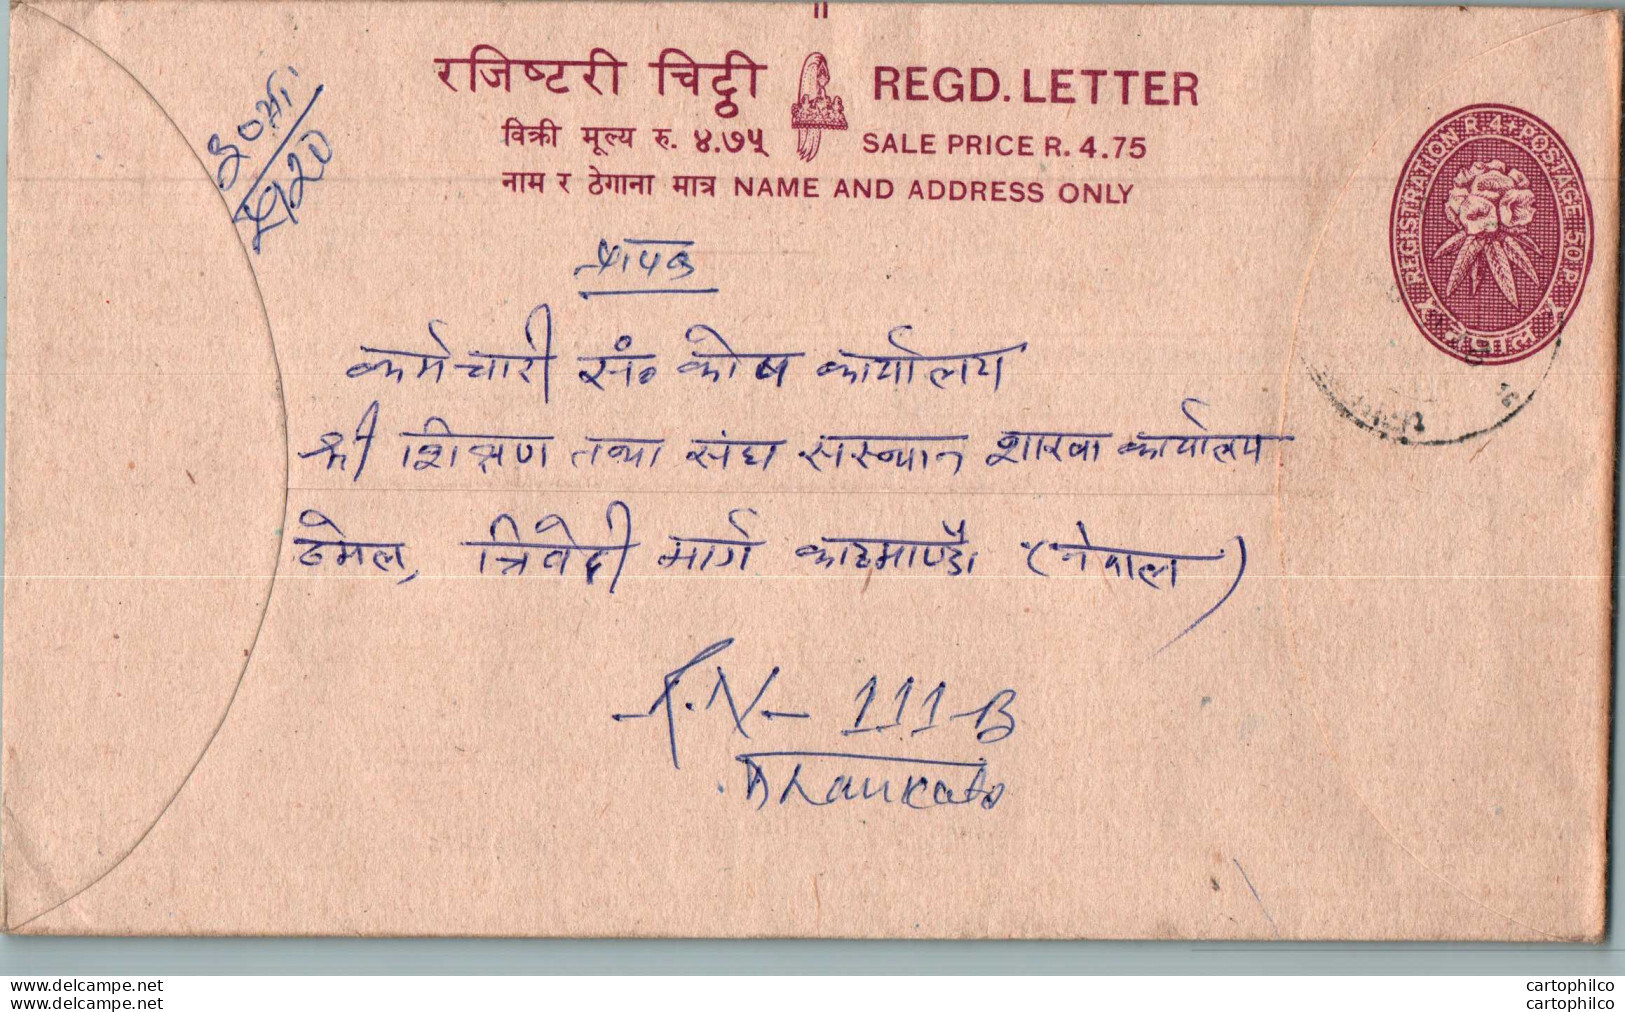 रजिष्टरी चिट्ठी REGD. LETTER
विक्री मूल्य रु. ४.७५ SALE PRICE R. 4.75
नाम र ठेगाना मात्र NAME AND ADDRESS ONLY
REGISTRATION R. 4. POSTAGE 50 P.
नेपाल
प्रापक
कर्मचारी सं० कोष कार्यालय
श्री शिक्षण तथा संघ संस्थान शाखा कार्यालय
ठमेल, त्रिदेवी मार्ग काठमाण्डौ (नेपाल)
111-B
Dhankuta
delcampe.net
cartophilco
delcampe.net
cartophilco